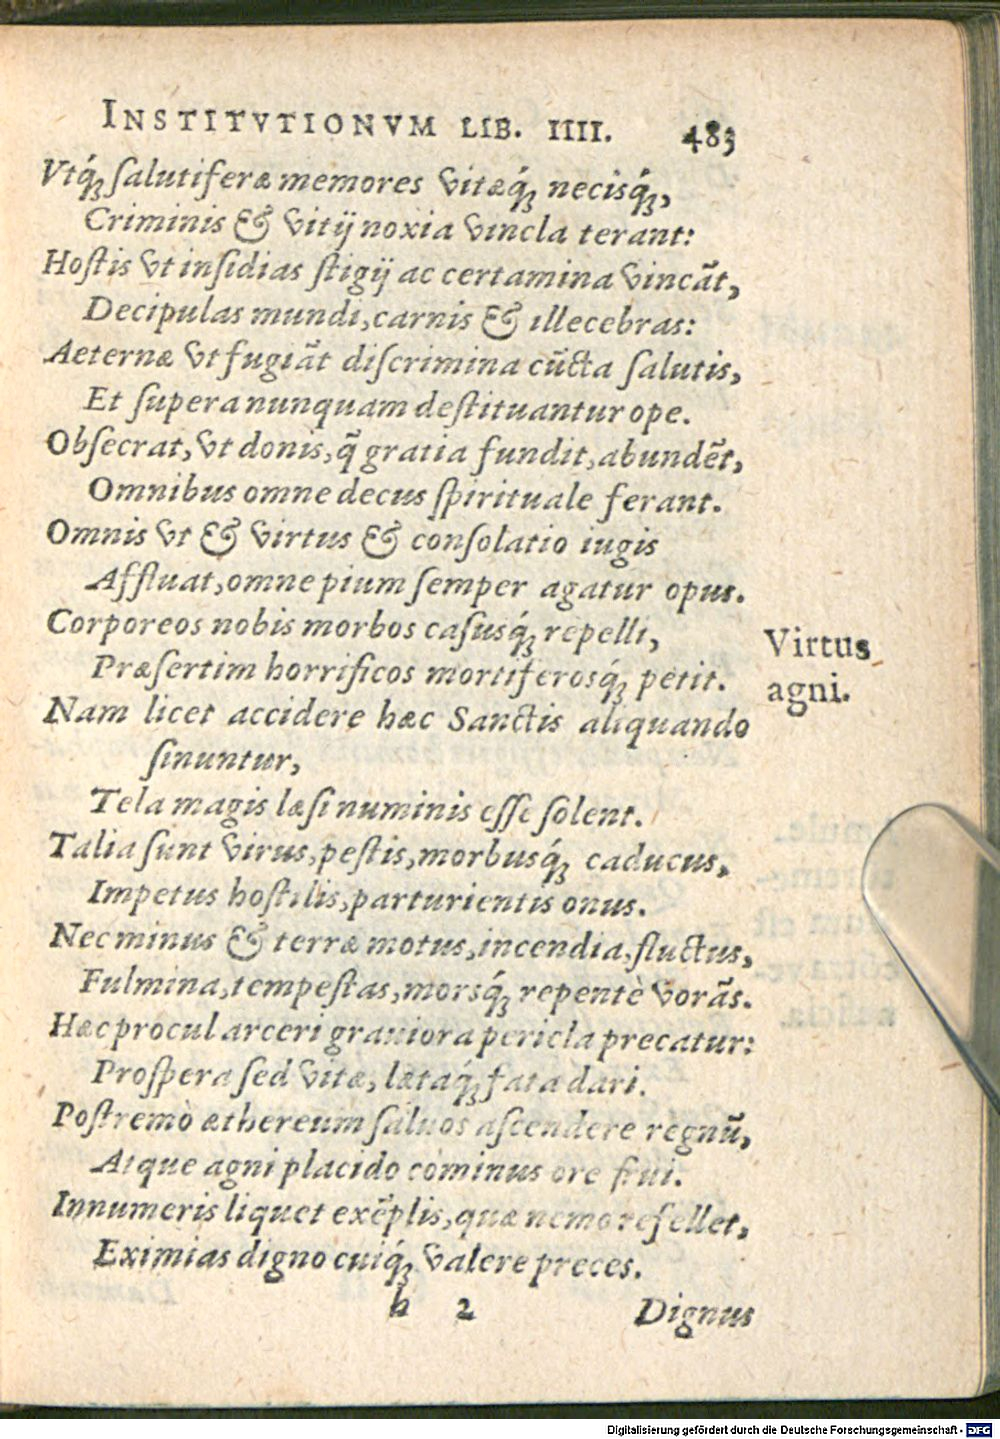 INSTITVTIONVM LIB. IIII. 483
Vtq́ꝫ salutiferæ memores vitæq́ꝫ necisq́ꝫ,
Criminis & vitij noxia vincla terant:
Hostis vt insidias stigij ac certamina vincãt,
Decipulas mundi, carnis & illecebras:
Aeternæ vt fugiãt discrimina cũcta salutis,
Et supera nunquam destituantur ope.
Obsecrat, vt donis, q̃ gratia fundit, abundẽt,
Omnibus omne decus spirituale ferant.
Omnis vt & virtus & consolatio iugis
Affluat, omne pium semper agatur opus.
Corporeos nobis morbos casusq́ꝫ repelli,
Præsertim horrificos mortiferosq́ꝫ petit.
Virtus
agni.
Nam licet accidere hæc Sanctis aliquando
sinuntur,
Tela magis læsi numinis esse solent.
Talia sunt virus, pestis, morbusq́ꝫ caducus,
Impetus hostilis, parturientis onus.
Nec minus & terræ motus, incendia, fluctus,
Fulmina, tempestas, morsq́ꝫ repentè vorãs.
Hæc procul arceri grauiora pericla precatur:
Prospera sed vitæ, lætaq́ꝫ fata dari.
Postremò æthereum saluos ascendere regnũ,
Atque agni placido cominus ore frui.
Innumeris liquet exẽplis, quæ nemo refellet,
Eximias digno cuiq́ꝫ valere preces.
h 2 Dignus
Digitalisierung gefördert durch die Deutsche Forschungsgemeinschaft - DFG